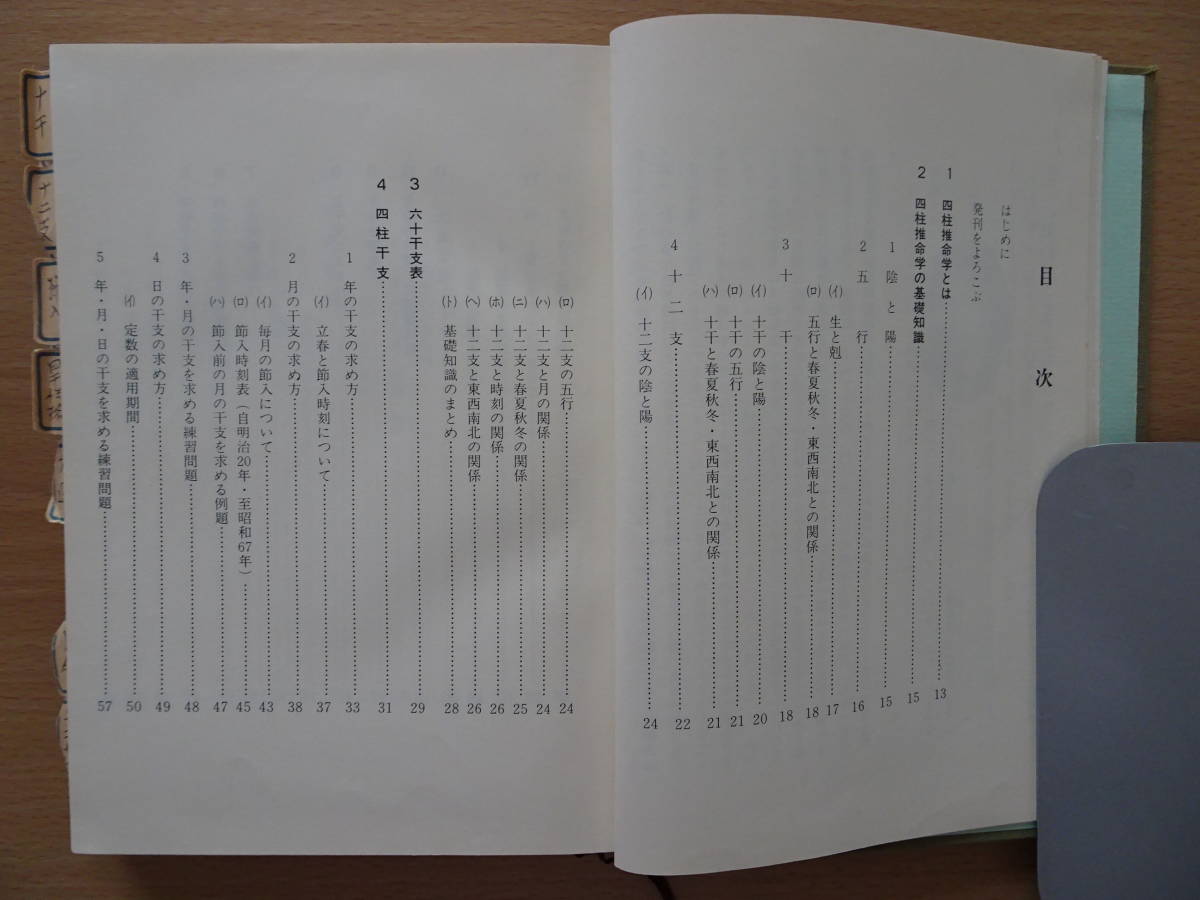 目次
はじめに
発刊をよろこぶ
1 四柱推命学とは……13
2 四柱推命学の基礎知識……15
1 陰と陽……15
2 五行……16
(イ) 生と剋……17
(ロ) 五行と春夏秋冬・東西南北との関係……18
3 十干……18
(イ) 十干の陰と陽……20
(ロ) 十干の五行……21
(ハ) 十干と春夏秋冬・東西南北との関係……21
4 十二支……22
(イ) 十二支の陰と陽……24
(ロ) 十二支の五行……24
(ハ) 十二支と月の関係……24
(ニ) 十二支と春夏秋冬の関係……25
(ホ) 十二支と時刻の関係……26
(ヘ) 十二支と東西南北の関係……26
(ト) 基礎知識のまとめ……28
3 六十干支表……29
4 四柱干支……31
1 年の干支の求め方……33
(イ) 立春と節入時刻について……37
2 月の干支の求め方……38
(イ) 毎月の節入について……43
(ロ) 節入時刻表(自明治20年・至昭和67年)……45
(ハ) 節入前の月の干支を求める例題……47
3 年・月の干支を求める練習問題……48
4 日の干支の求め方……49
(イ) 定数の適用期間……50
5 年・月・日の干支を求める練習問題……57
十干
十二支